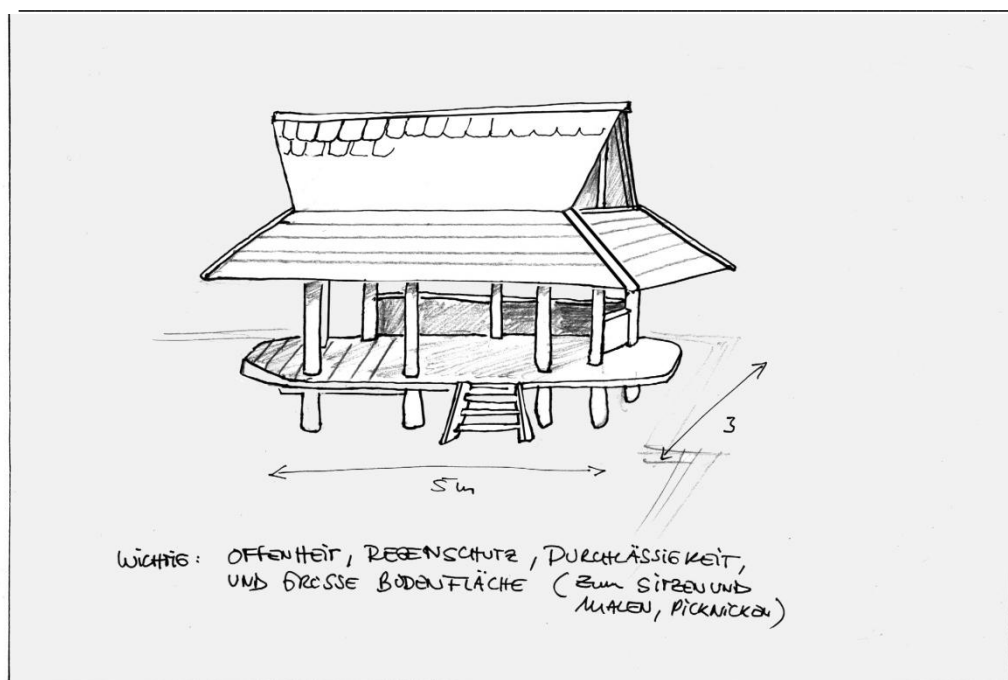 3
5m
WICHTIG: OFFENHEIT, REGENSCHUTZ, DURCHLÄSSIGKEIT,
UND GROSSE BODENFLÄCHE (ZUM SITZEN UND
MALEN, PICKNICKEN)